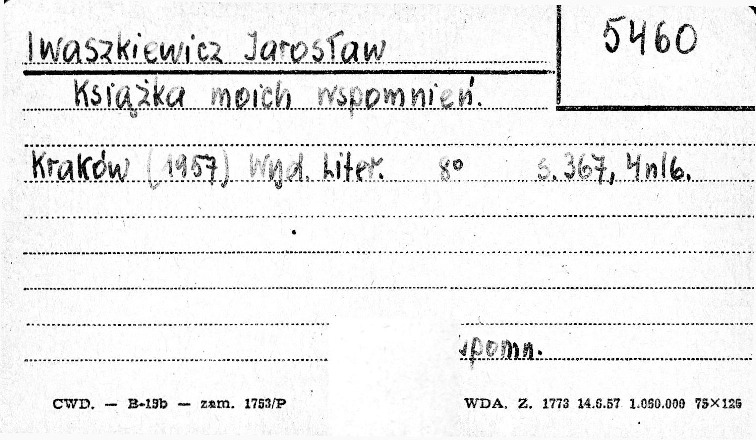 5460
Iwaszkiewicz Jarosław
Książka moich wspomnień.
Kraków (1957) Wyd. Liter. 8° s. 367, 4nlb.
spomn.
CWD. — B-15b — zam. 1753/P
WDA. Z. 1773 14.6.57 1.060.000 75×125